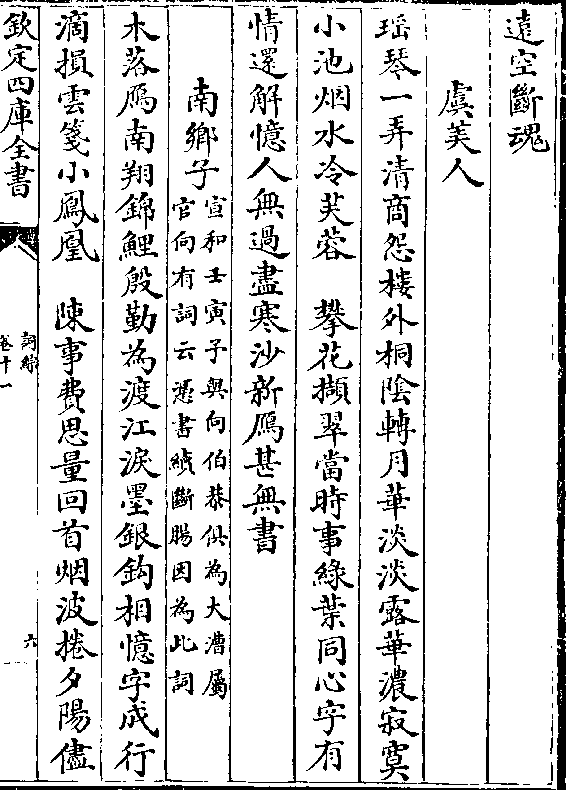 遠空斷魂
虞美人
瑶琴一弄清商怨樓外桐陰轉月華淡淡露華濃寂寞
小池烟水冷芙蓉　攀花擷翠當時事綠葉同心字有
情還解憶人無過盡寒沙新鴈甚無書
南鄉子
宣和壬寅子與向伯恭俱為大漕屬
官向有詞云憑書續斷腸因為此詞
木落鴈南翔錦鯉殷勤為渡江淚墨銀鈎相憶字成行
滴損雲箋小鳳凰　陳事費思量回首烟波捲夕陽儘
欽定四庫全書
詞綜
卷十一
六